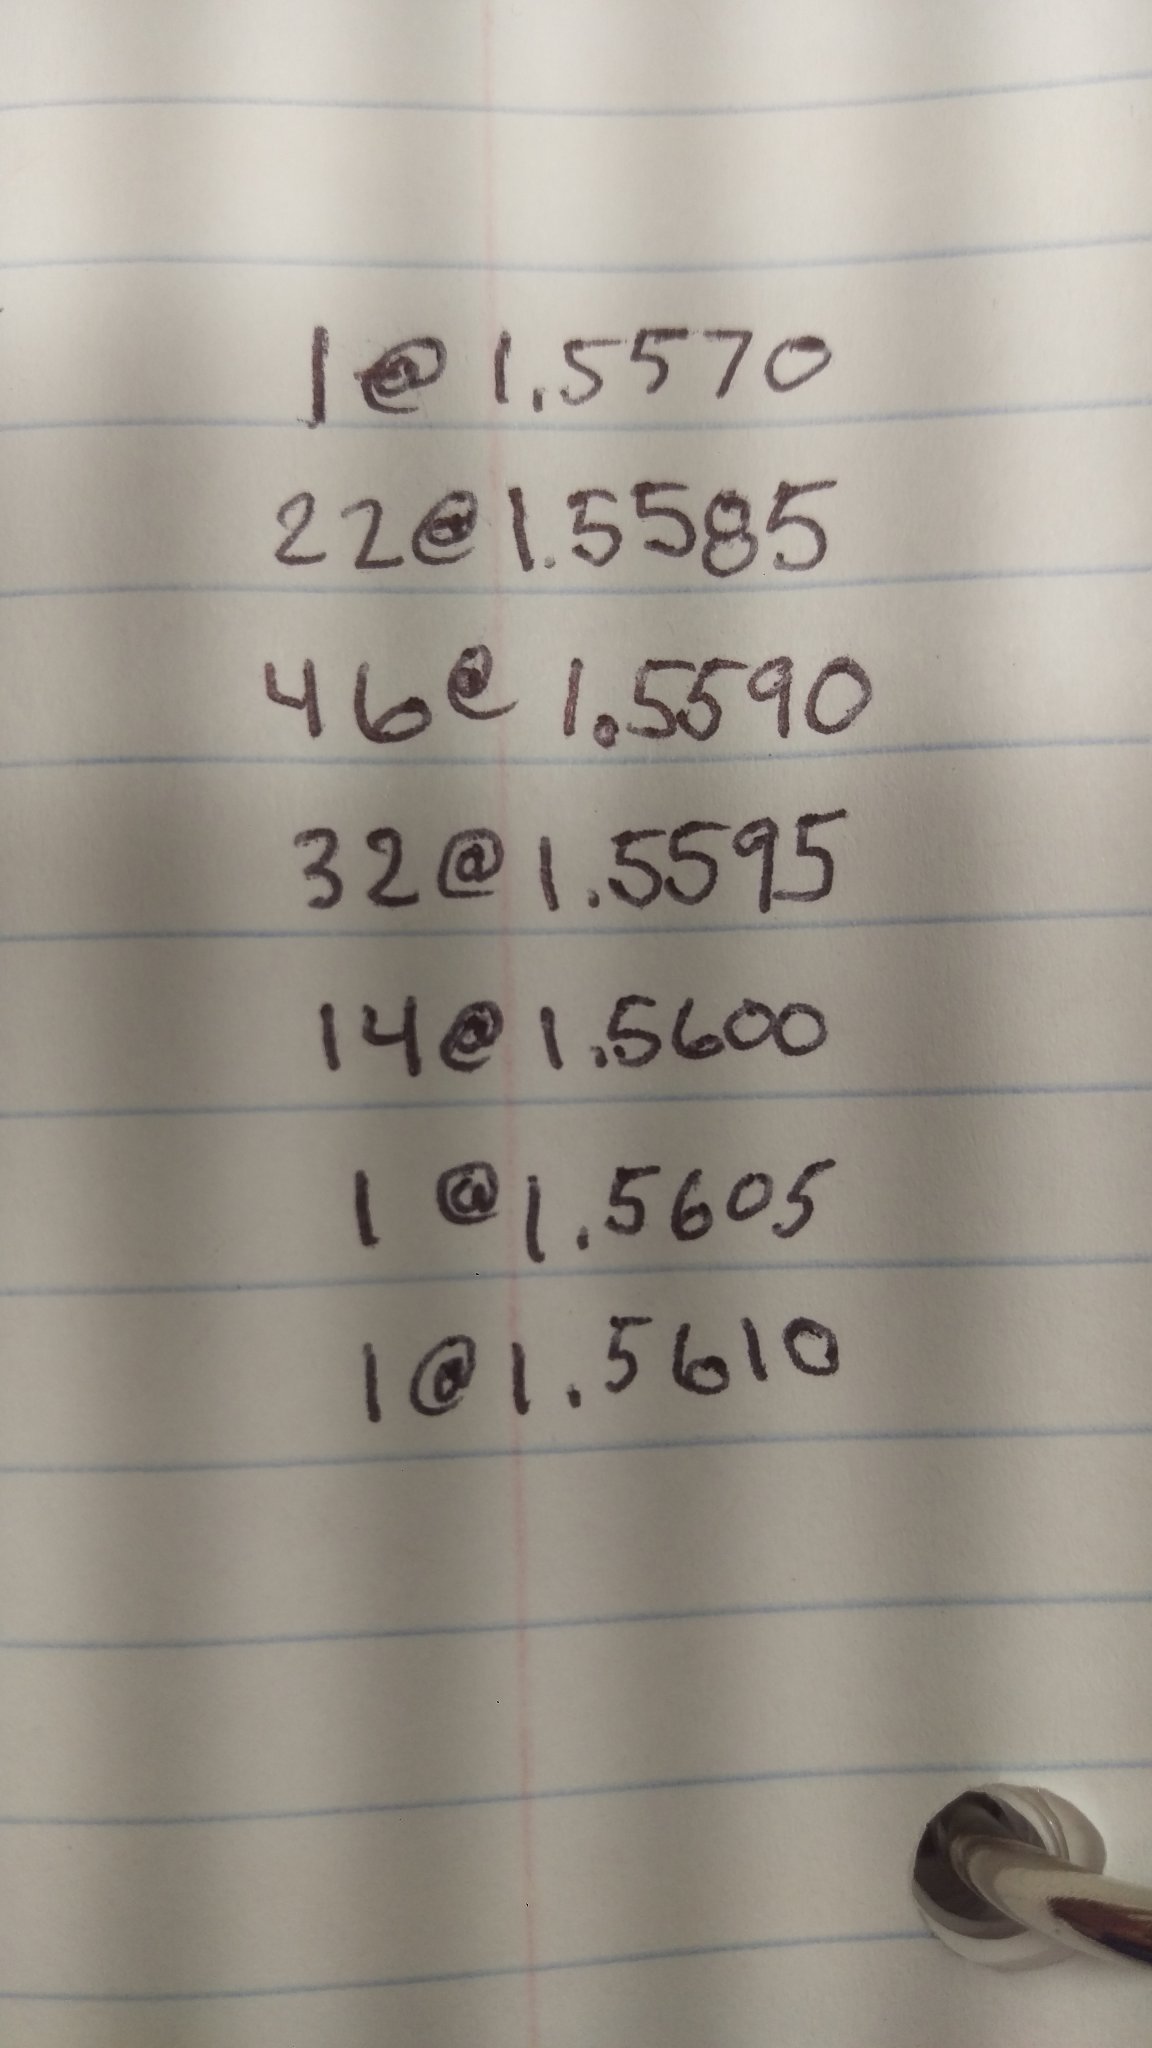 1@1.5570
22@1.5585
46@ 1.5590
32@1.5595
14@1.5600
1 @1.5605
1@1.5610